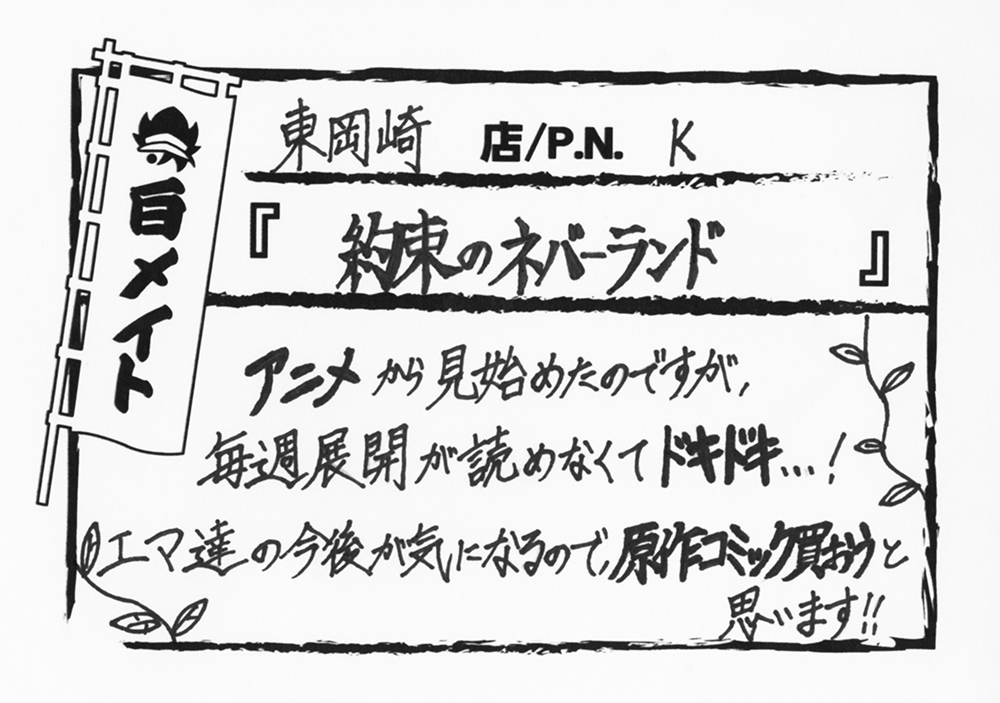 東岡崎 店/P.N. K
『約束のネバーランド』
目メイト
アニメから見始めたのですが、
毎週展開が読めなくてドキドキ…!
エマ達の今後が気になるので、原作コミック買おうと
思います!!